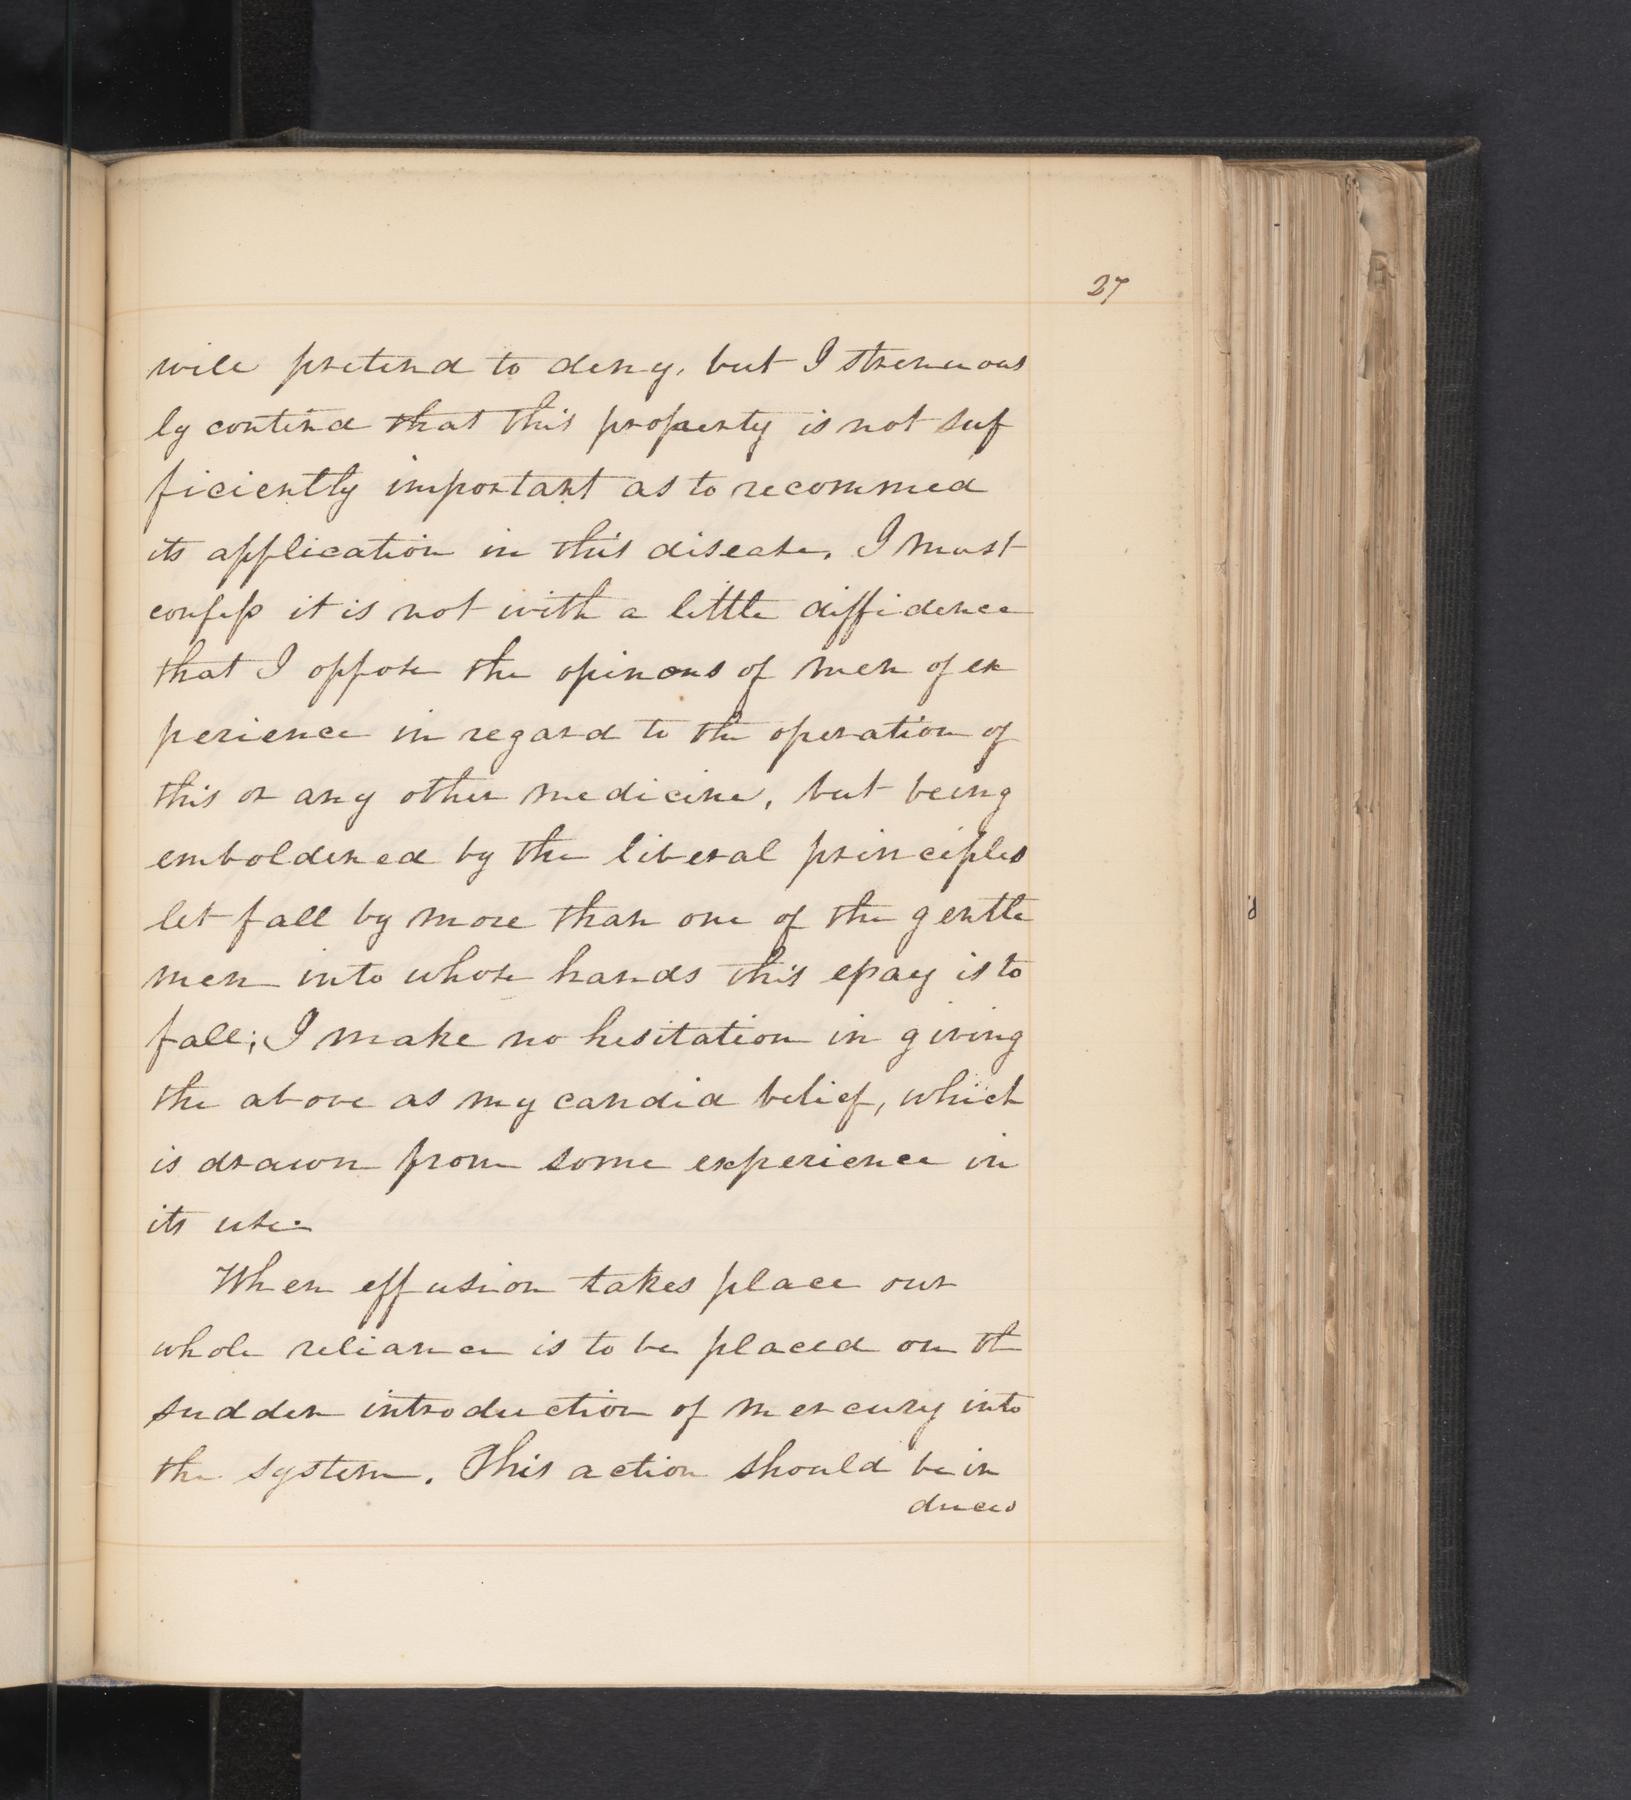 27
will pretend to deny, but I strenuous
ly contend that this property is not suf
ficiently important as to recommed
its application in this disease. I must
confess it is not with a little diffidence
that I oppose the opinons of men of ex
perience in regard to the operation of
this or any other medicine, but being
emboldened by the liberal principles
let fall by more than one of the gentle
men into whose hands this essay is to
fall; I make no hesitation in giving
the above as my candid belief, which
is drawn from some experience in
its use.
When effusion takes place our
whole reliance is to be placed on th
sudden introduction of mercury into
the system. This action should be in
duced